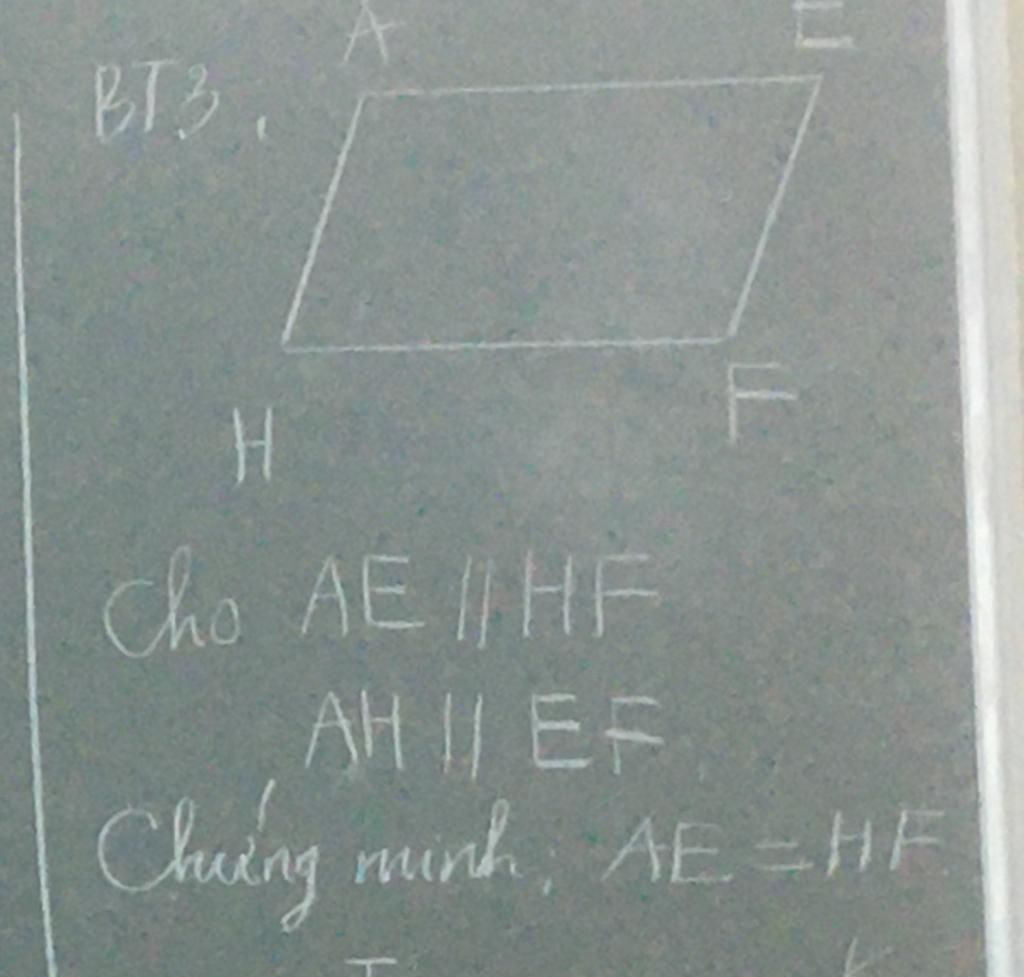 A E
BT3.
H F
Cho AE // HF
AH // EF
Chứng minh: AE = HF